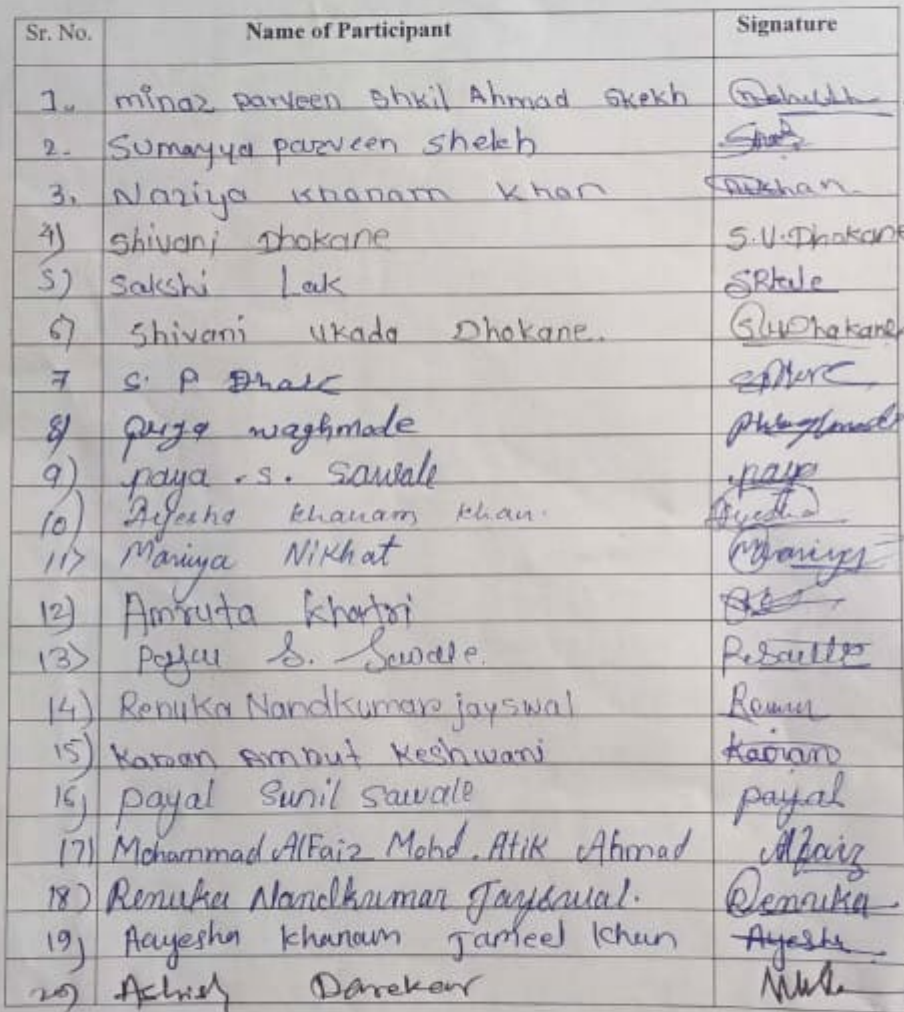 Sr. No. Name of Participant Signature
1. minaz parveen Shkil Ahmad Skekh
2. Sumayya parveen shekh
3. Naziya Khanam Khan
4) Shivani Dhokane S.U.Dhokane
5) Sakshi Lak
6) Shivani Ukada Dhokane. S.U.Dhokane
7 S. P
8) waghmade
9) paya . S. Sawale paya
10) Ayesha khanam khan. Ayesha
11) Mariya Nikhat Mariya
12) Amruta Khatri
13) S. Sawale.
14) Renuka Nandkumar jayswal Renu
15) Karan Amrut Keshwani Karan
16) payal Sunil Sawale payal
17) Mohammad AlFaiz Mohd. Atik Ahmad Alfaiz
18) Renuka Nandkumar Jayswal. Renuka
19) Aayesha Khanam Jameel Khan Ayesha
20) Ashish Darekar